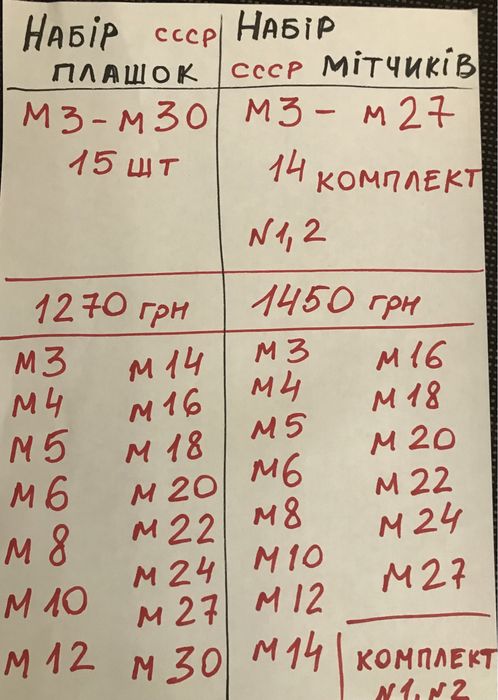 НАБІР СССР
ПЛАШОК
М3 - М30
15 ШТ
1270 ГРН
М3 М14
М4 М16
М5 М18
М6 М20
М8 М22
М10 М24
М12 М27
М30
НАБІР
СССР МІТЧИКІВ
М3 - М27
14 КОМПЛЕКТ
N1,2
1450 ГРН
М3 М16
М4 М18
М5 М20
М6 М22
М8 М24
М10 М27
М12
М14
КОМПЛЕКТ
N1, N2